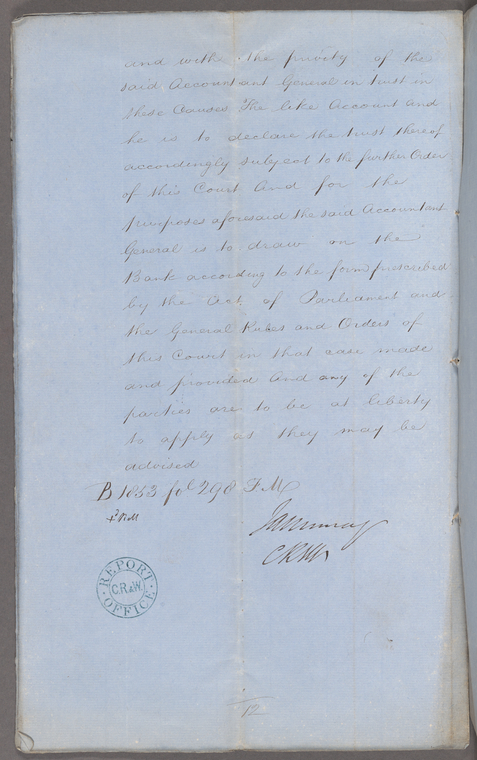 and with the privity of the
said Accountant General in trust in
these Causes The like Account and
he is to declare the trust thereof
accordingly subject to the further Order
of this Court And for the
purposes aforesaid the said Accountant
General is to draw on the
Bank according to the form prescribed
by the Act of Parliament and
the General Rules and Orders of
this Court in that case made
and provided And any of the
parties are to be at liberty
to apply as they may be
advised
B 1853 fol 298
REPORT OFFICE
C.R.&W.
12